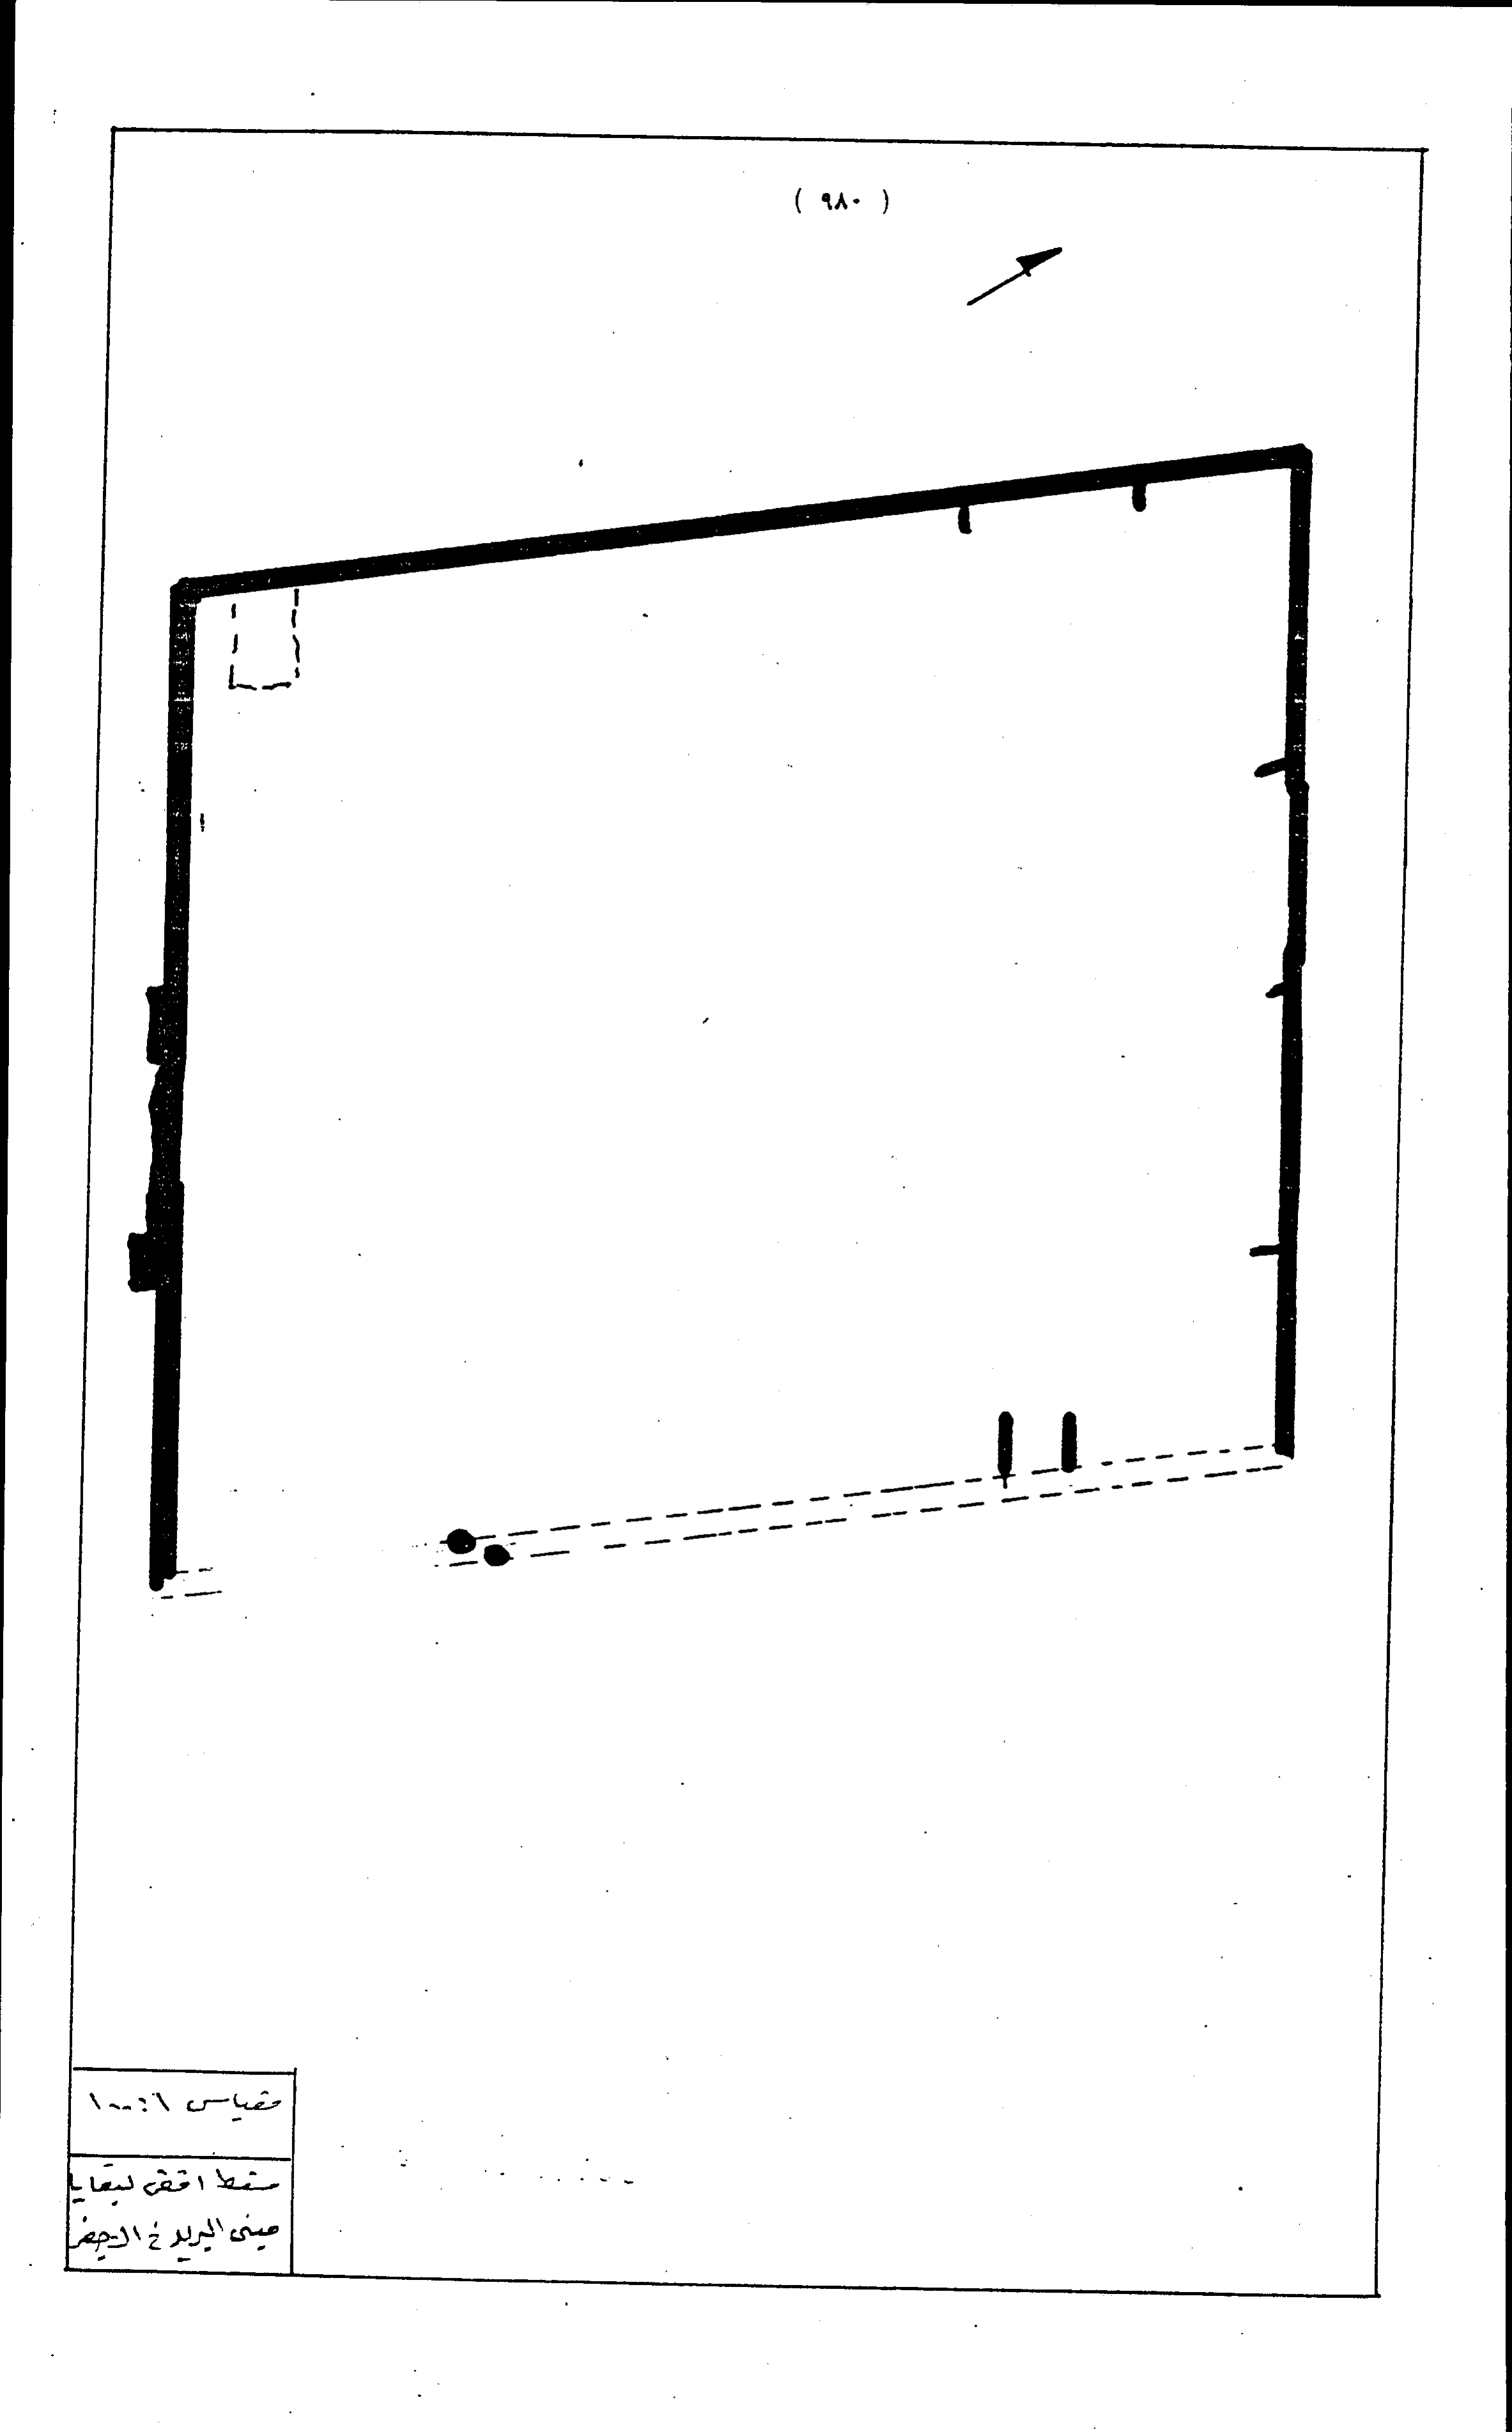 ( ٩٨٠ )
مقياس ١:١٠٠
مسقط افقى لبقايا
مبنى البريد فى الاخيضر